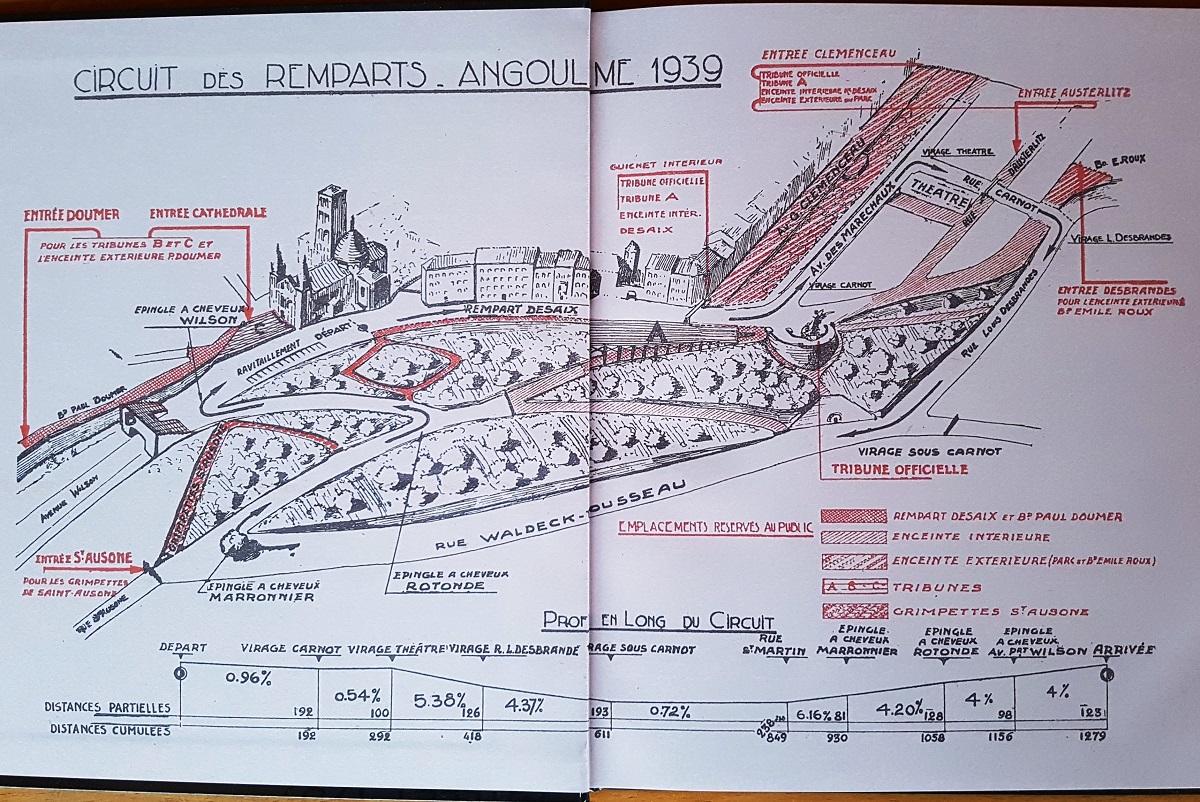 CIRCUIT DES REMPARTS _ ANGOUL ME 1939
ENTREE CLEMENCEAU
TRIBUNE OFFICIELLE
TRIBUNE A
ENCEINTE INTERIEURE Rt DESAIX
ENCEINTE EXTERIEURE DU PARC
ENTRÉE AUSTERLITZ
GUICHET INTERIEUR
TRIBUNE OFFICIELLE
TRIBUNE A
ENCEINTE INTÉR.
DESAIX
ENTRÉE DOUMER
ENTREE CATHEDRALE
POUR LES TRIBUNES B ET C ET
L'ENCEINTE EXTERIEURE P. DOUMER
EPINGLE A CHEVEUX
WILSON
AV. G. CLEMENCEAU
AV. DES MARÉCHAUX
VIRAGE THEATRE
THEATRE
RUE CARNOT
RUE D'AUSTERLITZ
Bd E. ROUX
VIRAGE L. DESBRANDES
VIRAGE CARNOT
ENTRÉE DESBRANDES
POUR L'ENCEINTE EXTÉRIEURE
Bd EMILE ROUX
RUE LOUIS DESBRANDES
REMPART DESAIX
RAVITAILLEMENT
DÉPART
A
B
C
Bd PAUL DOUMER
AVENUE WILSON
VIRAGE SOUS CARNOT
TRIBUNE OFFICIELLE
RUE WALDECK-ROUSSEAU
ENTRÉE St AUSONE
POUR LES GRIMPETTES
DE SAINT-AUSONE
RUE St AUSONE
EPINGLE A CHEVEUX
MARRONNIER
EPINGLE A CHEVEUX
ROTONDE
EMPLACEMENTS RESERVÉS AU PUBLIC
REMPART DESAIX ET Bd PAUL DOUMER
ENCEINTE INTERIEURE
ENCEINTE EXTERIEURE (PARC ET Bd EMILE ROUX)
A-B-C TRIBUNES
GRIMPETTES St AUSONE
PROF EN LONG DU CIRCUIT
DEPART
VIRAGE CARNOT
VIRAGE THÉÂTRE
VIRAGE R.L.DESBRANDE
RAGE SOUS CARNOT
RUE
St MARTIN
EPINGLE
A CHEVEUX
MARRONNIER
EPINGLE
A CHEVEUX
ROTONDE
EPINGLE
A CHEVEUX
AV. Pdt WILSON
ARRIVÉE
0.96% 0.54% 5.38% 4.37% 0.72% 6.16% 4.20% 4% 4%
DISTANCES PARTIELLES 192 100 126 193 238 81 128 98 123
DISTANCES CUMULEES 192 292 418 611 849 930 1058 1156 1279